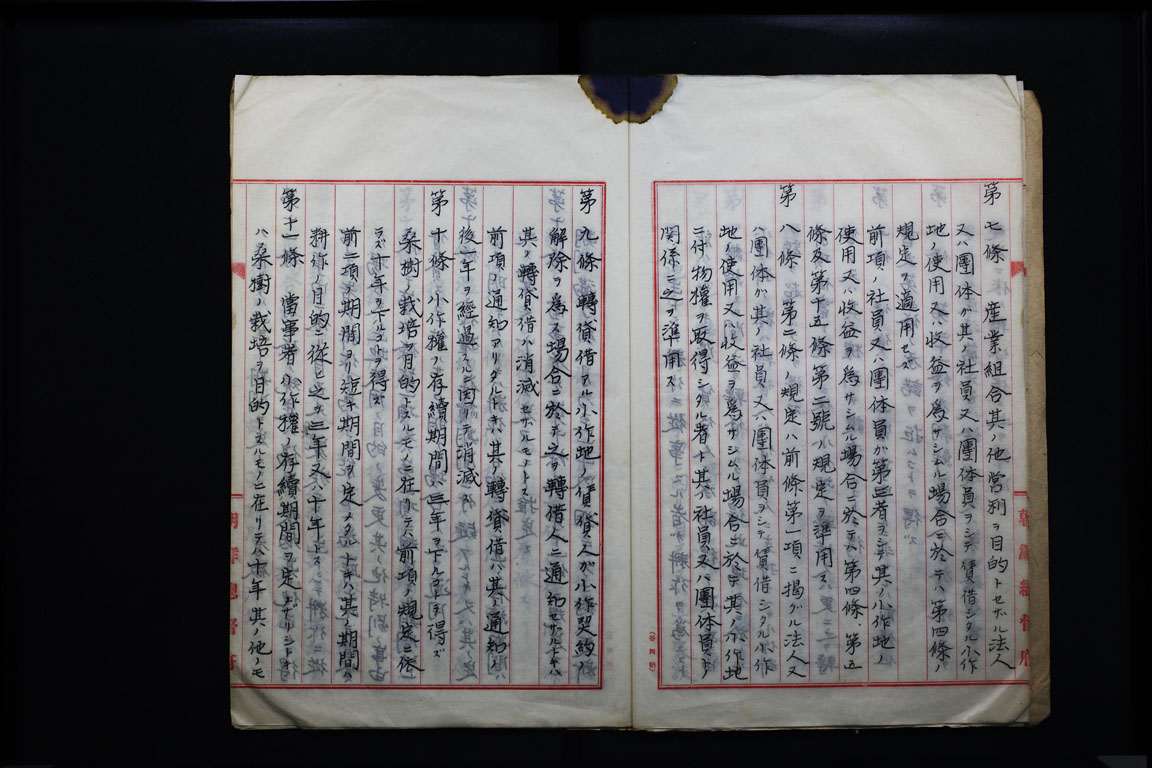 第七條 産業組合其ノ他営利ヲ目的トセザル法人
又ハ團体ガ其ノ社員又ハ團体員ヲシテ賃借シタル小作
地ノ使用又ハ收益ヲ爲サシムル場合ニ於テハ第四條ノ
規定ヲ適用セズ
前項ノ社員又ハ團体員ガ第三者ヲシテ其ノ小作地ノ
使用又ハ收益ヲ爲サシムル場合ニ於テハ第四條、第五
條及第十五條第二號ノ規定ヲ準用ス
第八條 第二條ノ規定ハ前條第一項ニ揭グル法人又
ハ團体ガ其ノ社員又ハ團体員ヲシテ賃借シタル小作
地ノ使用又ハ收益ヲ爲サシムル場合ニ於テ其ノ小作地
ニ付物權ヲ取得シタル者ト其ノ社員又ハ團体員トノ
關係ニ之ヲ準用ス
第九條 轉貸借アル小作地ノ賃貸人ガ小作契約ノ
解除ヲ爲ス場合ニ於テ之ヲ轉借人ニ通知セザルトキハ
其ノ轉貸借ハ消滅セザルモノトス
前項ノ通知アリタルトキハ其ノ轉貸借ハ其ノ通知
後一年ヲ經過スルニ因リテ消滅ス
第十條 小作權ノ存續期間ハ三年ヲ下ルコトヲ得ズ
桑樹ノ栽培ヲ目的トスルモノニ在リテハ前項ノ規定ニ依
ラズ十年ヲ下ルコトヲ得ズ
前二項ノ期間ヨリ短キ期間ヲ定メタルトキハ其ノ期間ハ
耕作ノ目的ニ從ヒ之ヲ三年又ハ十年トス
第十一條 當事者小作權ノ存續期間ヲ定メザリシトキ
ハ桑樹ノ栽培ヲ目的トスルモノニ在リテハ十年其ノ他ノモ
朝鮮總督府